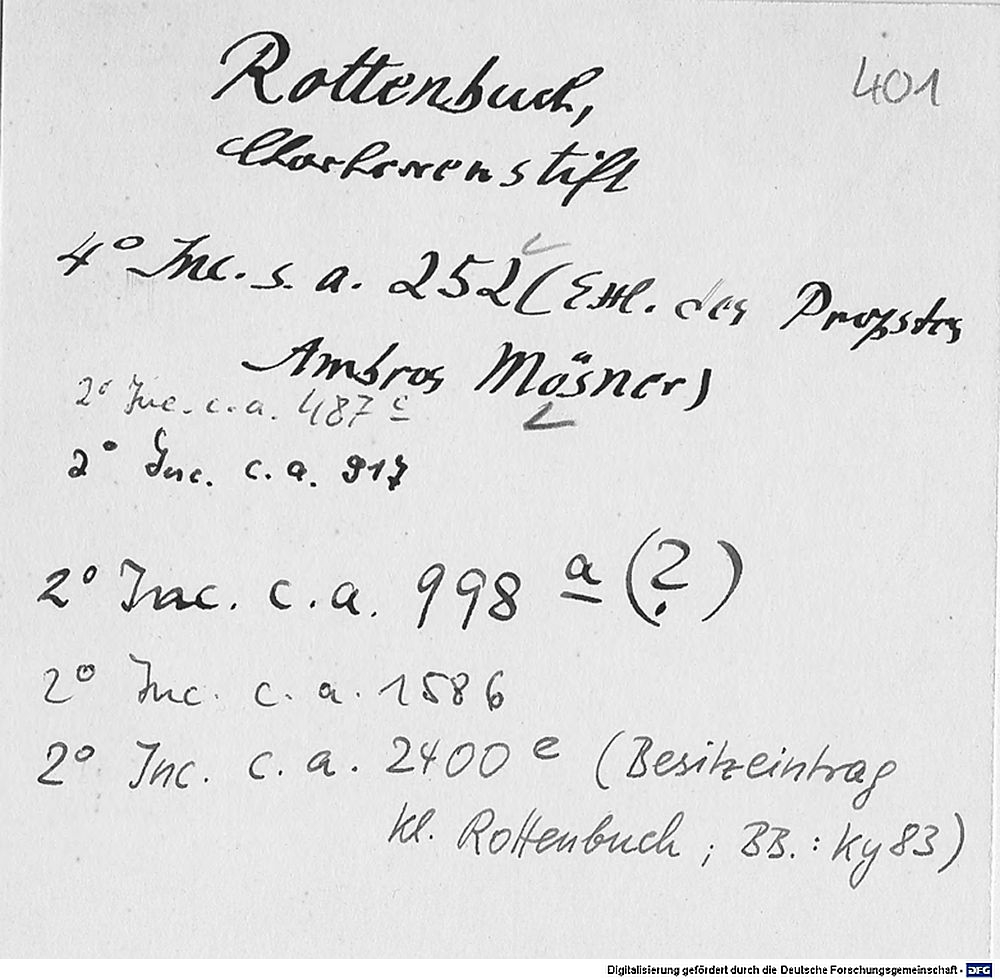 Rottenbuch, 401
Chorherrenstift
4° Inc. s. a. 252 (Exl. des Propstes
Ambros Mösner)
2° Inc. c. a. 487 c
2° Inc. c. a. 917
2° Inc. c. a. 998 a (?)
2° Inc. c. a. 1586
2° Inc. c. a. 2400 e (Besitzeintrag
Kl. Rottenbuch ; BB. : Ky 83)
Digitalisierung gefördert durch die Deutsche Forschungsgemeinschaft - DFG